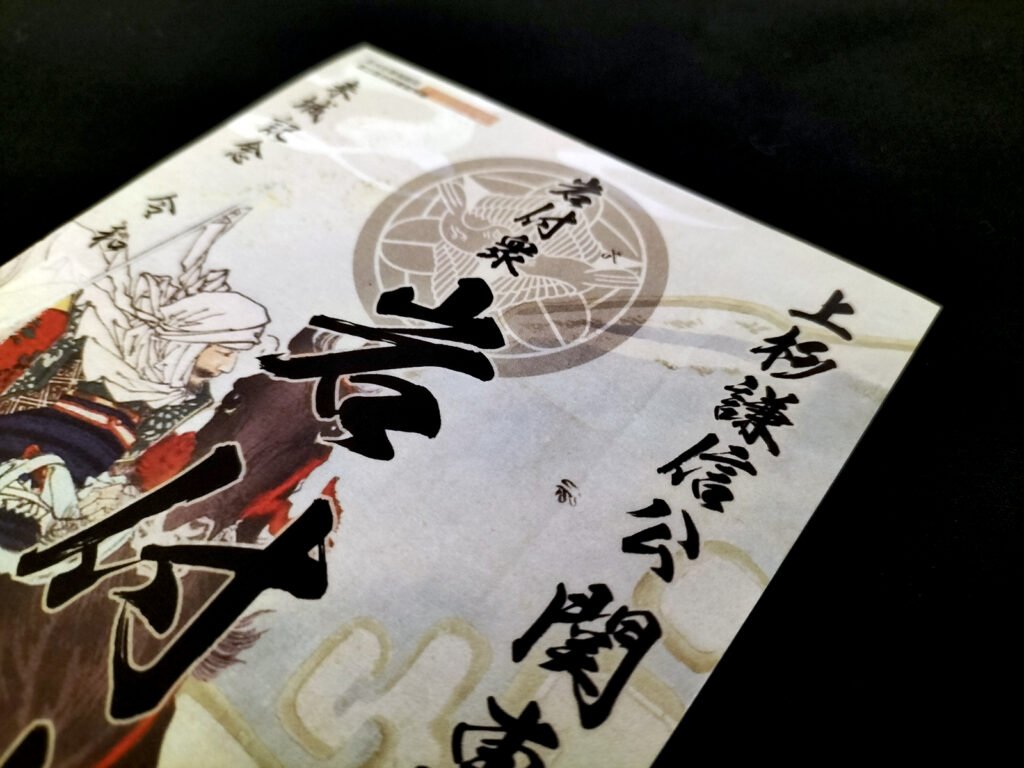 上杉謙信公 関東
岩付衆
岩付
来城記念
令和